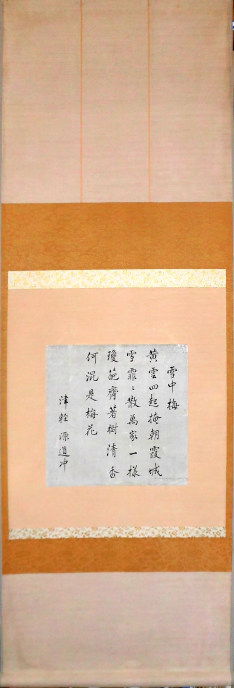 雪中梅
黄雲四起掩朝霞城
雪霏〻散萬家一樣
瓊葩齊着樹清香
何況是梅花
津輕源道冲